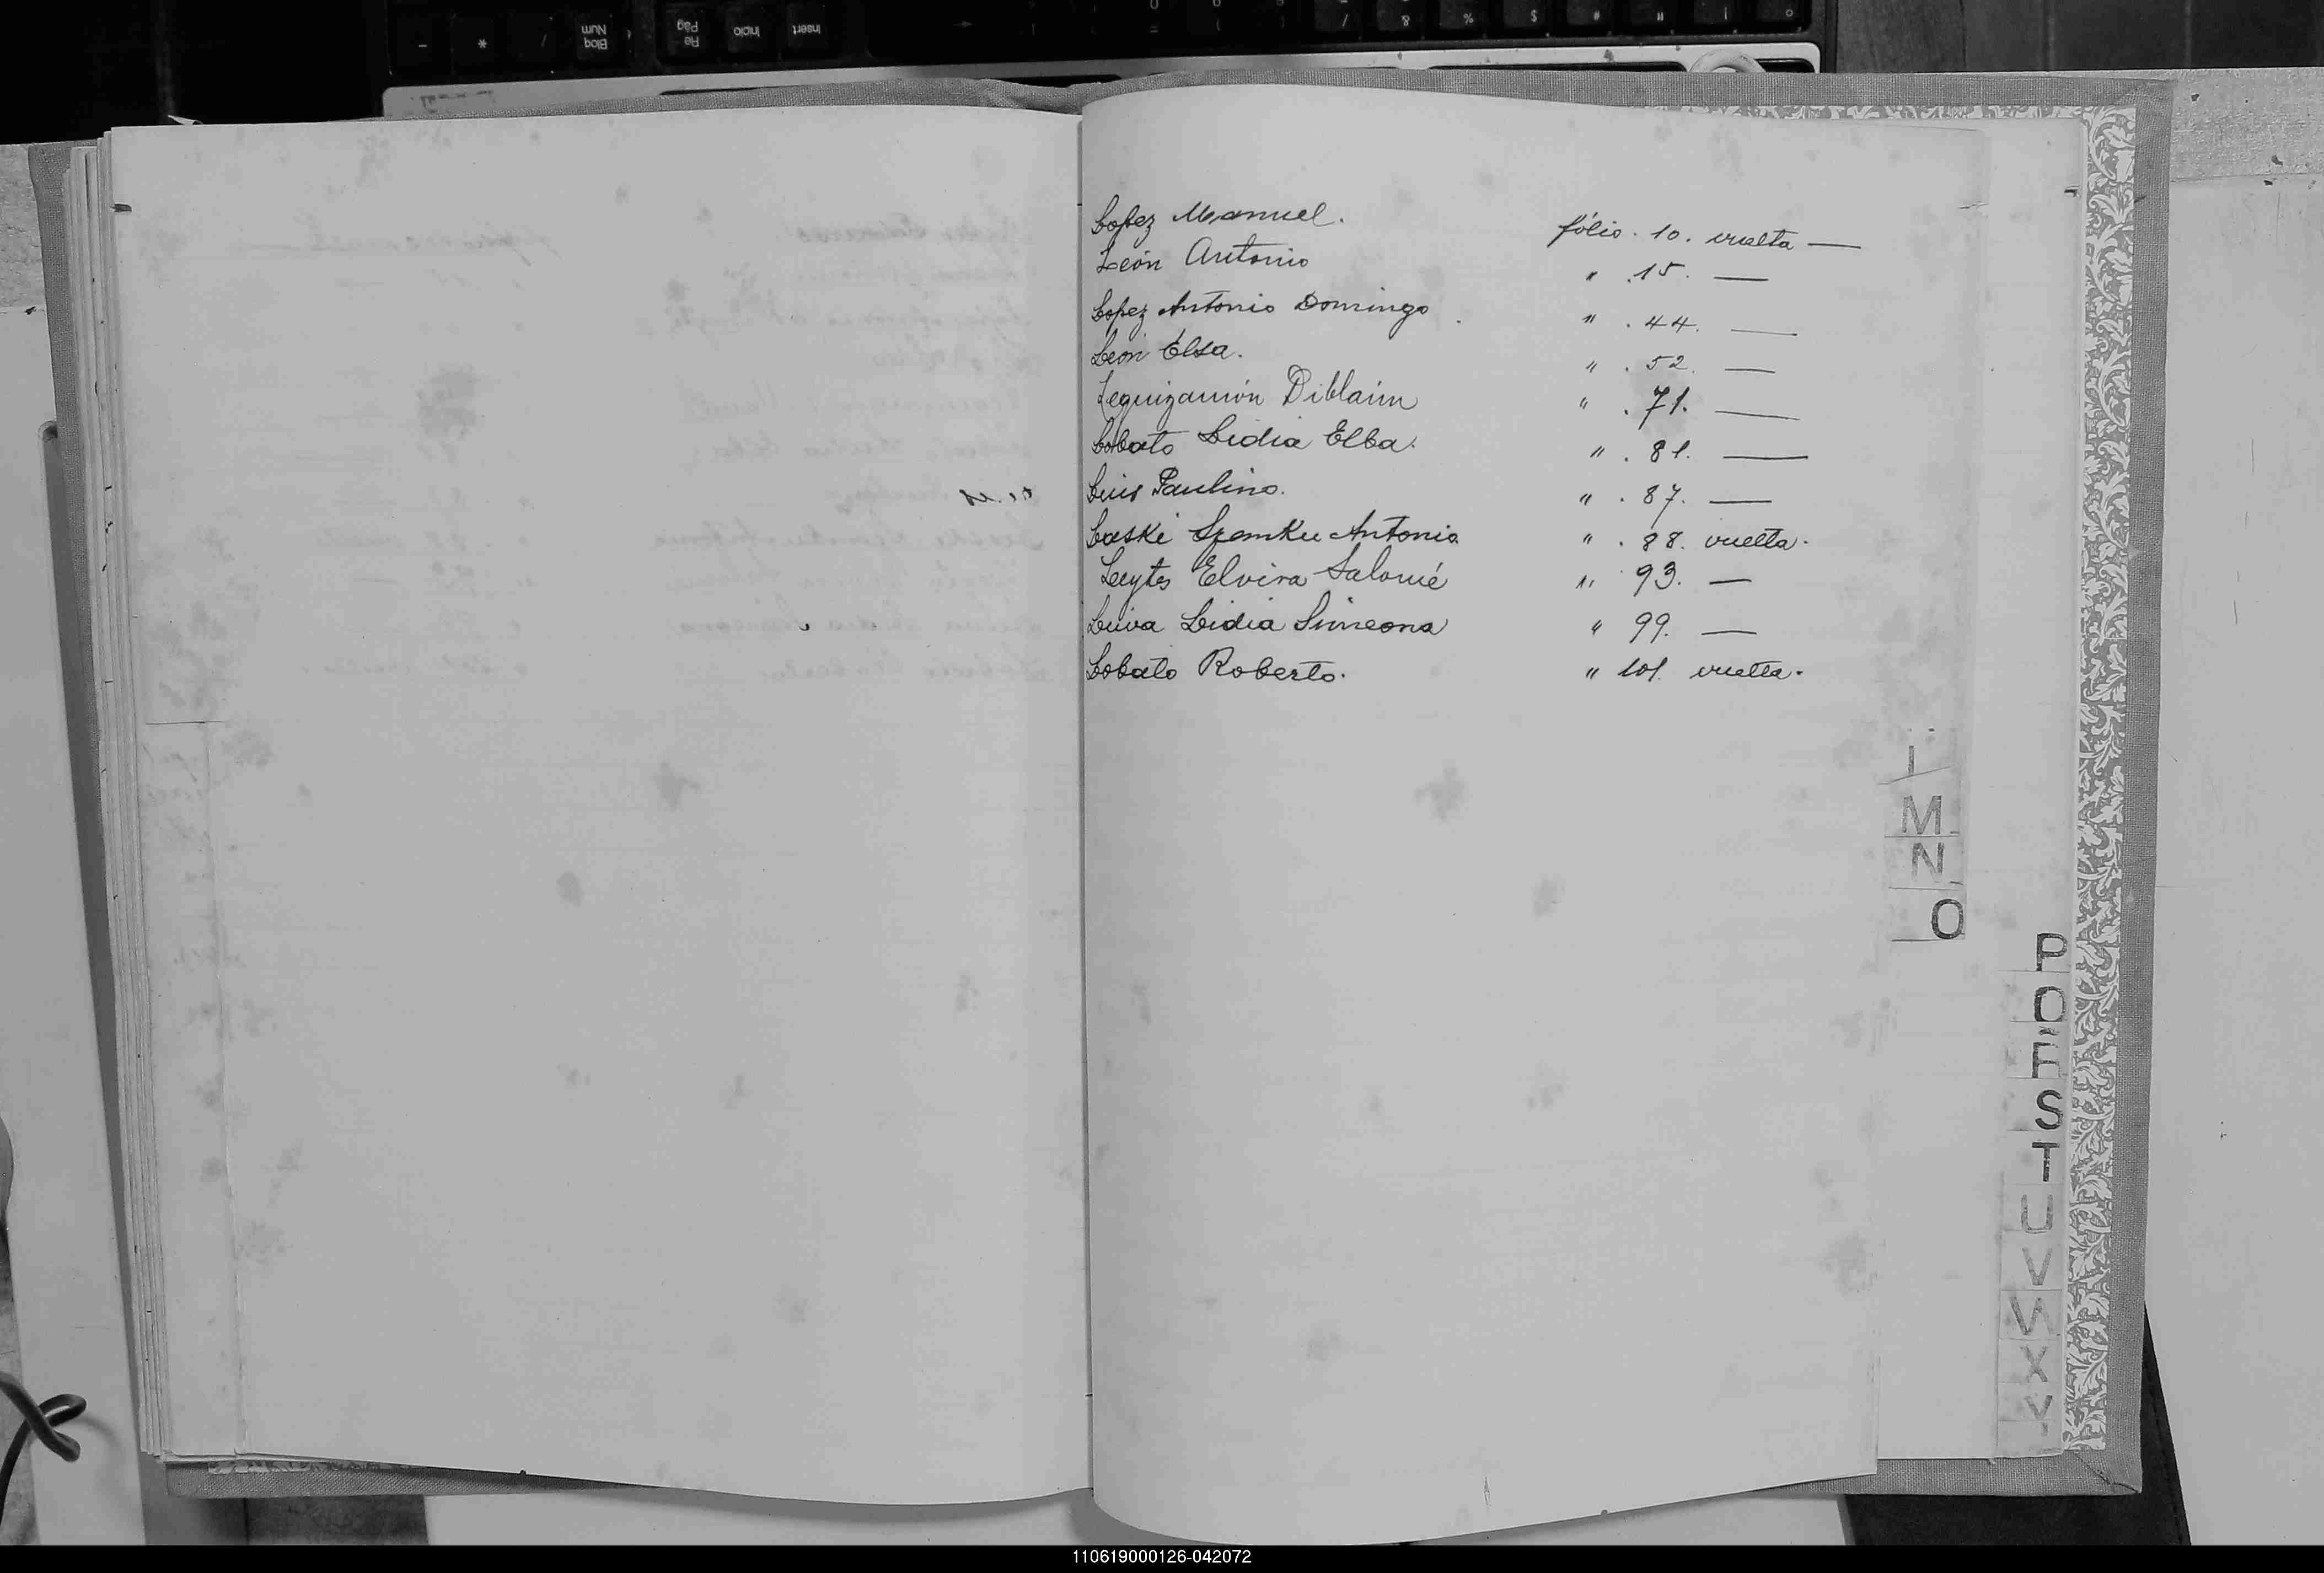 Lopez Manuel. fólio. 10. vuelta —
León Antonio " .15. —
Lopez Antonio Domingo " . 44. —
León Elsa. " . 52. —
Leguizamón Diblaim " . 71. —
Lobato Lidia Elba. " . 81. —
Luis Paulino. " . 87. —
Laski Szemku Antonio " . 88. vuelta.
Elvira Salomé " 93. —
Leiva Lidia Simeona " 99. —
Lobato Roberto. " 101. vuelta.
M
N
O
P
Q
R
S
T
U
V
W
X
Y
Insert
Inicio
Re Pág
Bloq Num
/
*
-
110619000126-042072